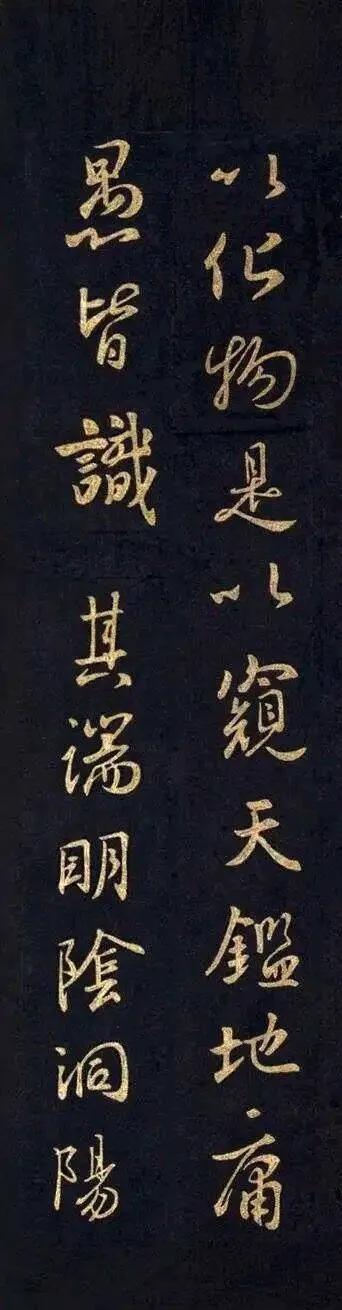 以化物是以窺天鑑地庸
愚皆識其端明陰洞陽